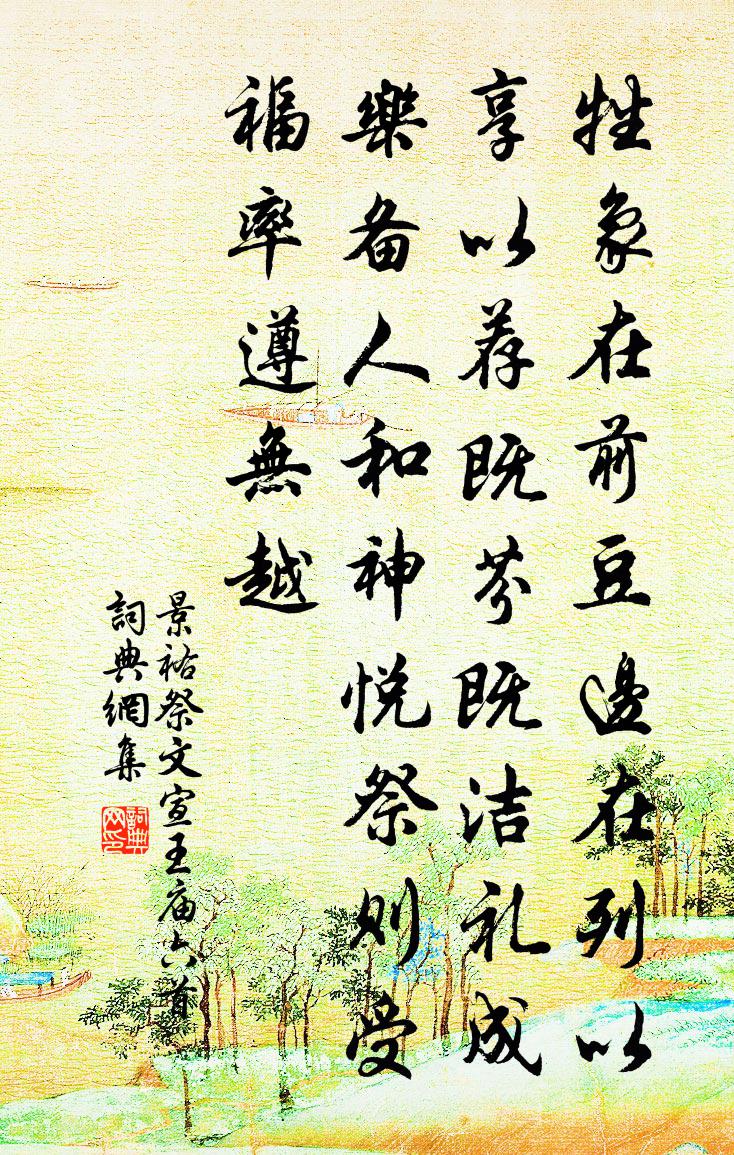 牲象在前豆邊在列以
享以荐既芬既洁礼成
樂备人和神悦祭则受
福率遵無越
景祐祭文宣王庙六首
詞典網集
詞典网印